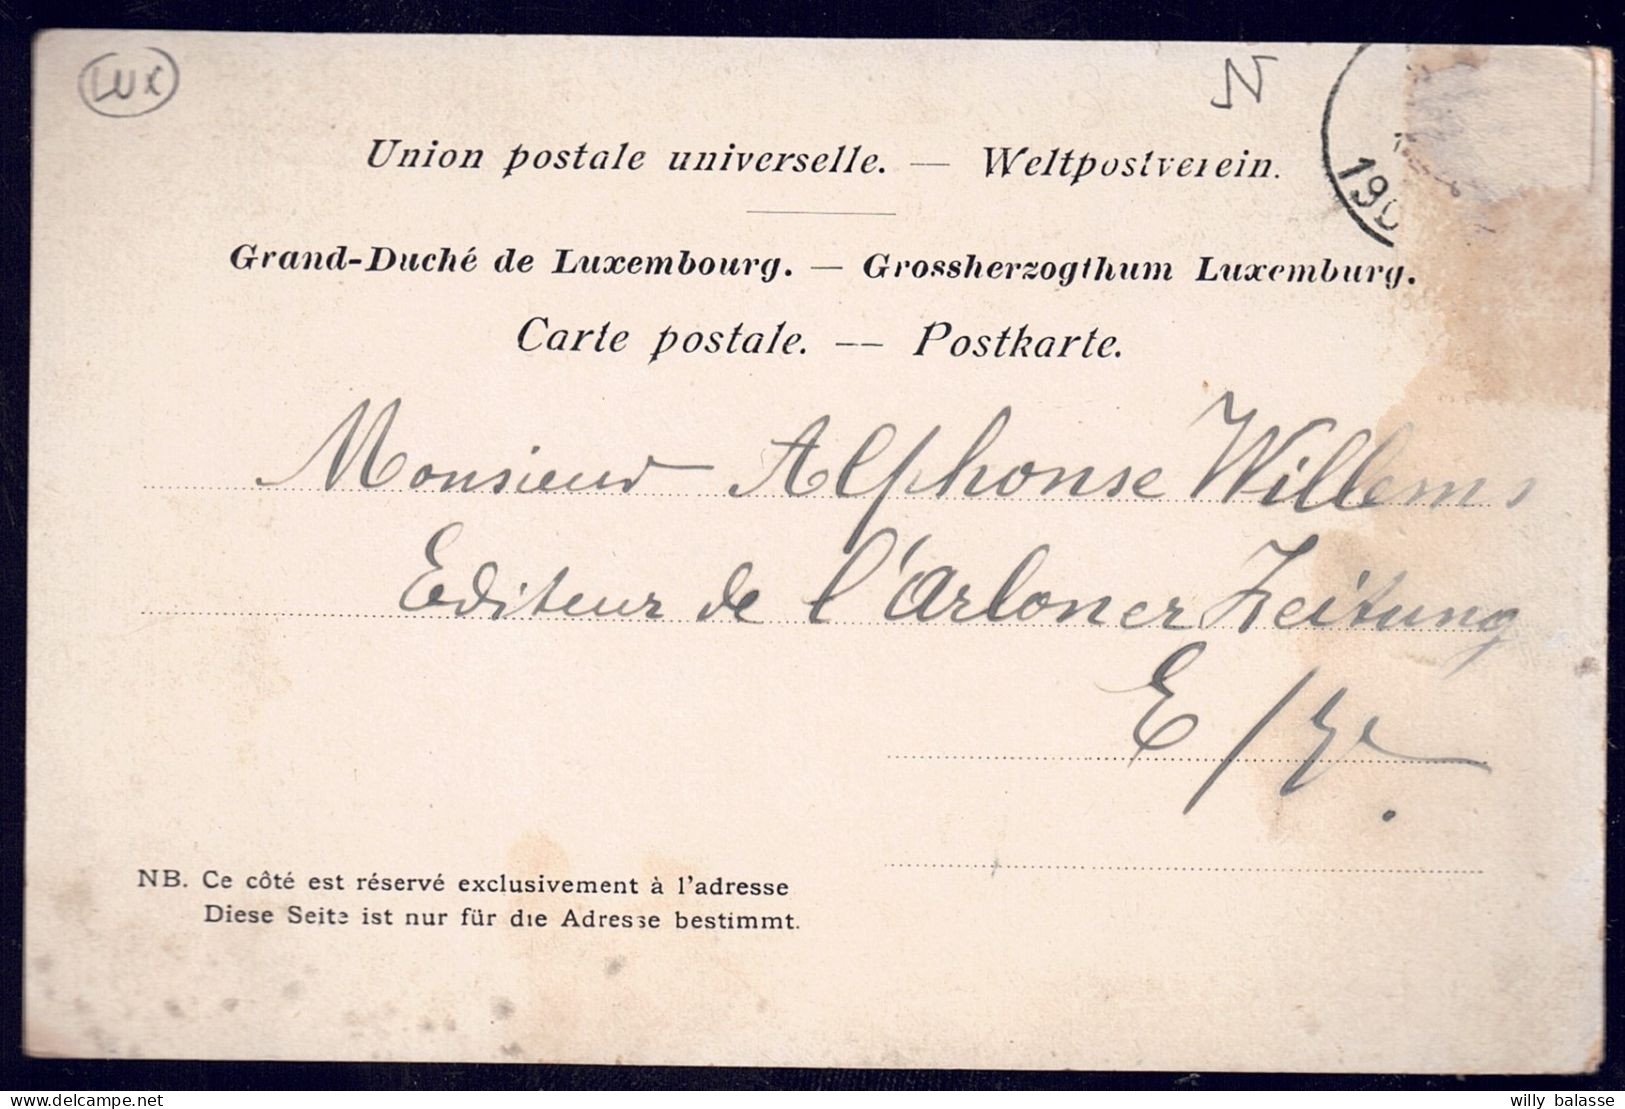 Lux
N
190
Union postale universelle. — Weltpostverein.
Grand-Duché de Luxembourg. — Grossherzogthum Luxemburg.
Carte postale. — Postkarte.
Monsieur Alphonse Willems
Editeur de l'Arloner Zeitung
E/
NB. Ce côté est réservé exclusivement à l'adresse
Diese Seite ist nur für die Adresse bestimmt.
willy balasse